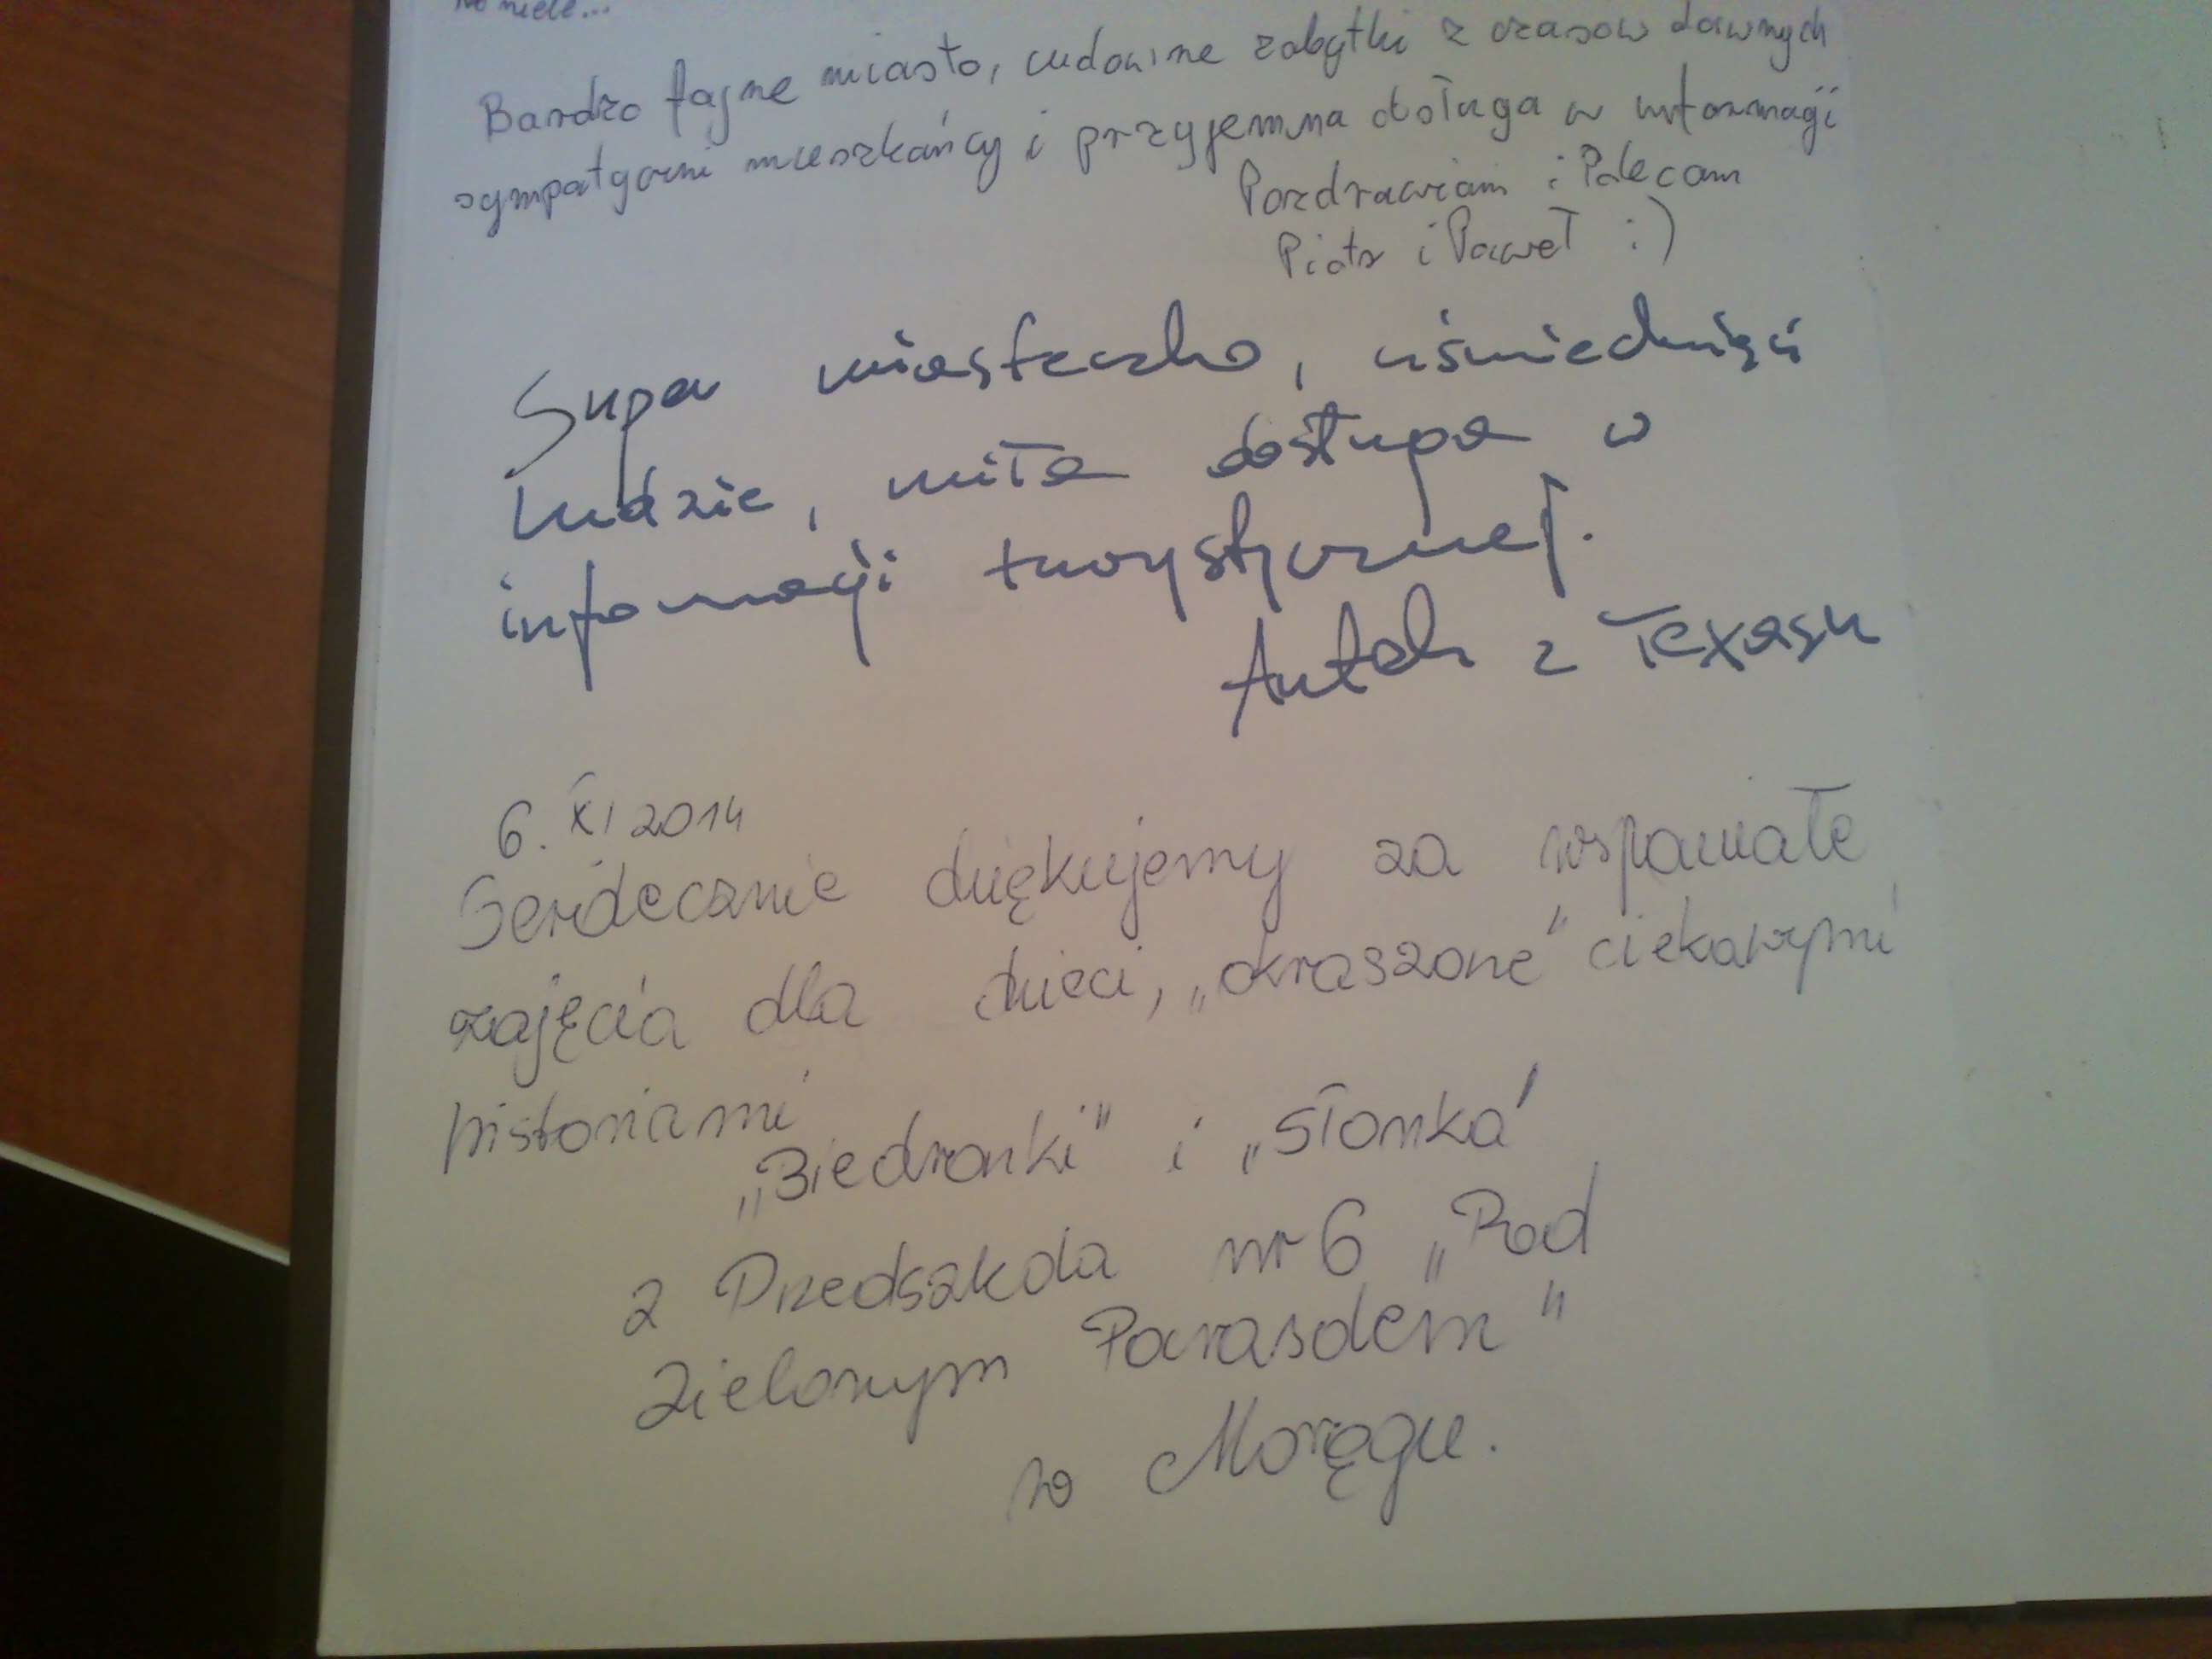 Bardzo fajne miasto, cudowne zabytki z czasów dawnych
sympatyczni mieszkańcy i przyjemna obsługa w informacji
Pozdrawiam i Polecam
Piotr i Paweł :)
Super miasteczko, uśmiechnięci
ludzie, miła obsługa w
informacji turystycznej.
Antek z Texasu
6. XI 2014
Serdecznie dziękujemy za wspaniałe
zajęcia dla dzieci, „okraszone" ciekawymi
historiami
„Biedronki" i „Słonka"
z Przedszkola nr 6 „Pod
Zielonym Parasolem"
w Morągu.